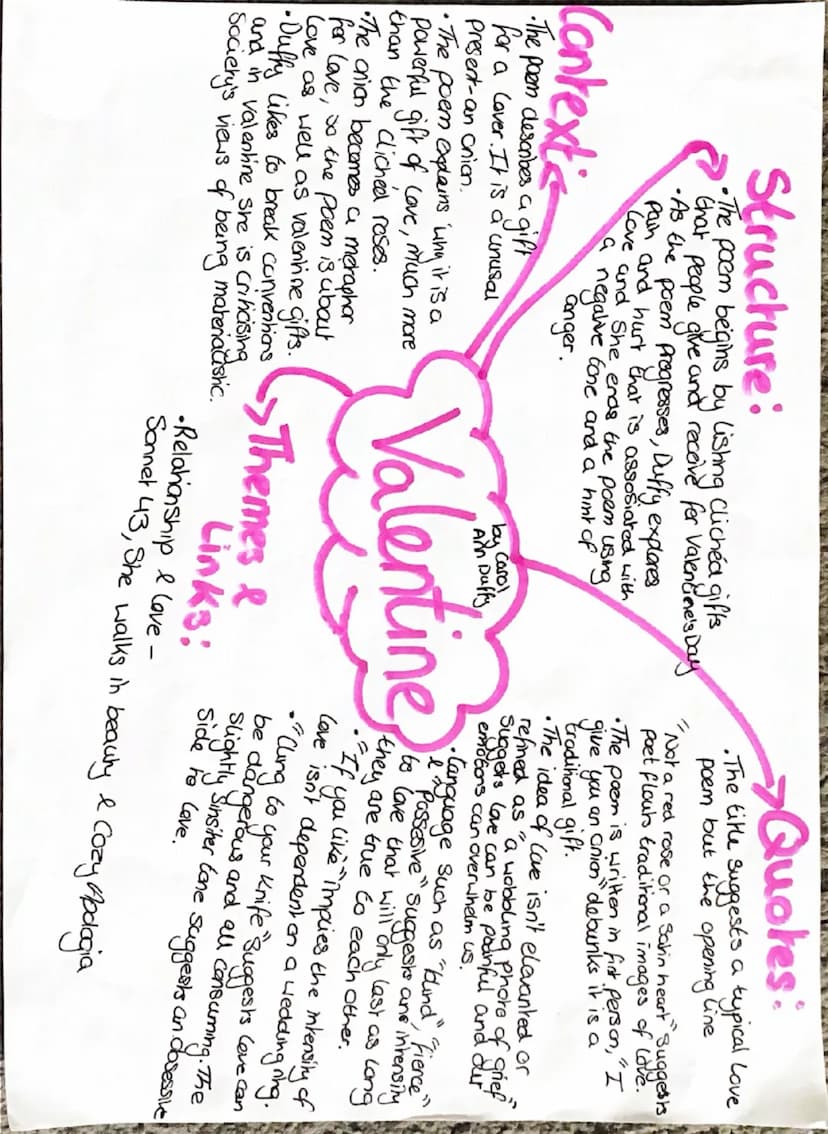 Structure:
• The poem begins by listing clichéd gifts
that people give and receive for Valentine's Day
• As the poem progresses, Duffy explores
pain and hurt that is assosiated with
love and she ends the poem using
a negative tone and a hint of
anger.
Context:
• The poem describes a gift
for a lover. It is a unusual
present - an onion.
• The poem explains why it is a
powerful gift of love, much more
than the cliched roses.
• The onion becomes a metaphor
for love, so the poem is about
love as well as valentine gifts.
• Duffy likes to break conventions
and in valentine she is criticising
Society's views of being materialistic.
Valentine
by Carol
Ann Duffy
Quotes:
• The title suggests a typical love
poem but the opening line
"Not a red rose or a satin heart" suggests
poet flouts traditional images of love.
• The poem is written in first person, "I
give you an onion" debunks it is a
traditional gift.
• The idea of love isn't elavanted or
refined as "a wobbling photo of grief"
suggests love can be painful and our
emotions can overwhelm us.
• Language such as "blind", "fierce"
& "possesive" suggests an intensity
to love that will only last as long
they are true to each other.
• "If you like" implies the intensity of
love isn't dependent on a wedding ring.
• "Clung to your knife" suggests love can
be dangerous and all consuming. The
slightly sinsiter tone suggests an obsessive
side to love.
Themes &
Links:
• Relationship & love -
Sonnet 43, She walks in beauty & Cozy Apologia